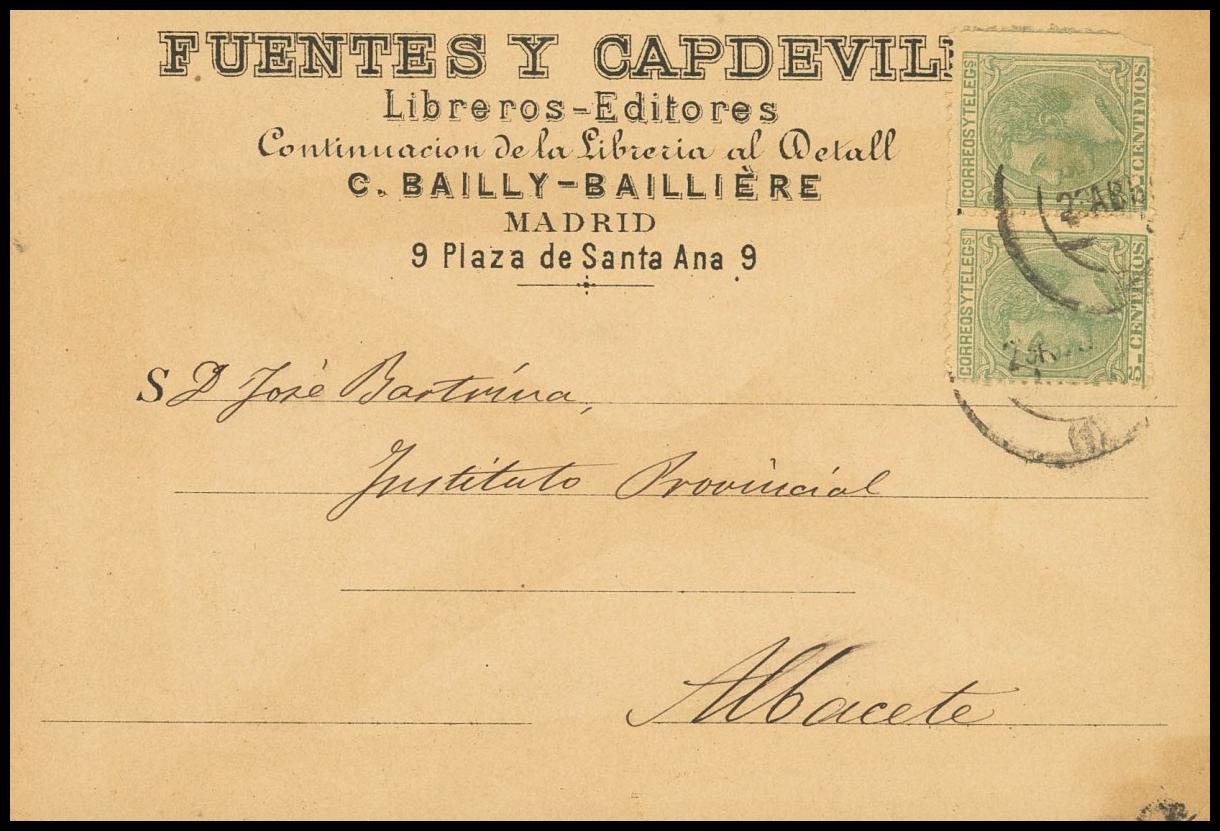 FUENTES Y CAPDEVIL
Libreros-Editores
Continuacion de la Libreria al Detall
C. BAILLY-BAILLIÈRE
MADRID
9 Plaza de Santa Ana 9
CORREOS Y TELEGS
5 CENTIMOS
CORREOS Y TELEGS
5_CENTIMOS
(1)
S D José Bartrina,
Instituto Provincial
Albacete